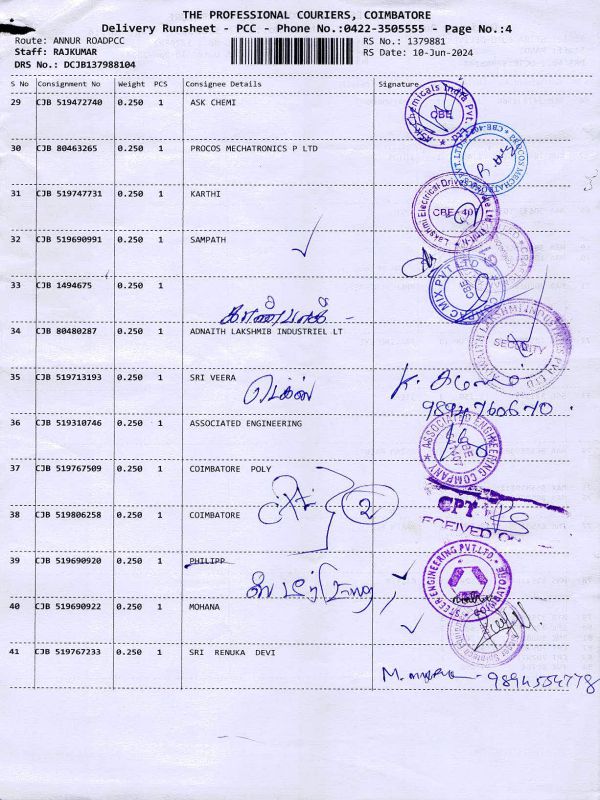 THE PROFESSIONAL COURIERS, COIMBATORE
Delivery Runsheet - PCC - Phone No.:0422-3505555 - Page No.:4
Route: ANNUR ROADPCC
RS No.: 1379881
Staff: RAJKUMAR
RS Date: 10-Jun-2024
DRS No.: DCJB137988104
S No Consignment No Weight PCS Consignee Details Signature
29 CJB 519472740 0.250 1 ASK CHEMI
CBE
30 CJB 80463265 0.250 1 PROCOS MECHATRONICS P LTD
31 CJB 519747731 0.250 1 KARTHI
CBE-40
32 CJB 519690991 0.250 1 SAMPATH
33 CJB 1494675 0.250 1
CBE
34 CJB 80480287 0.250 1 ADNAITH LAKSHMIB INDUSTRIEL LT
SECURITY
35 CJB 519713193 0.250 1 SRI VEERA
36 CJB 519310746 0.250 1 ASSOCIATED ENGINEERING
ASSOCIATED ENGINEERING COMPANY
37 CJB 519767509 0.250 1 COIMBATORE POLY
2
38 CJB 519806258 0.250 1 COIMBATORE
CPT
39 CJB 519690920 0.250 1 PHILIPP
STEER ENGINEERING PVT.LTD.
40 CJB 519690922 0.250 1 MOHANA
41 CJB 519767233 0.250 1 SRI RENUKA DEVI
9894554778